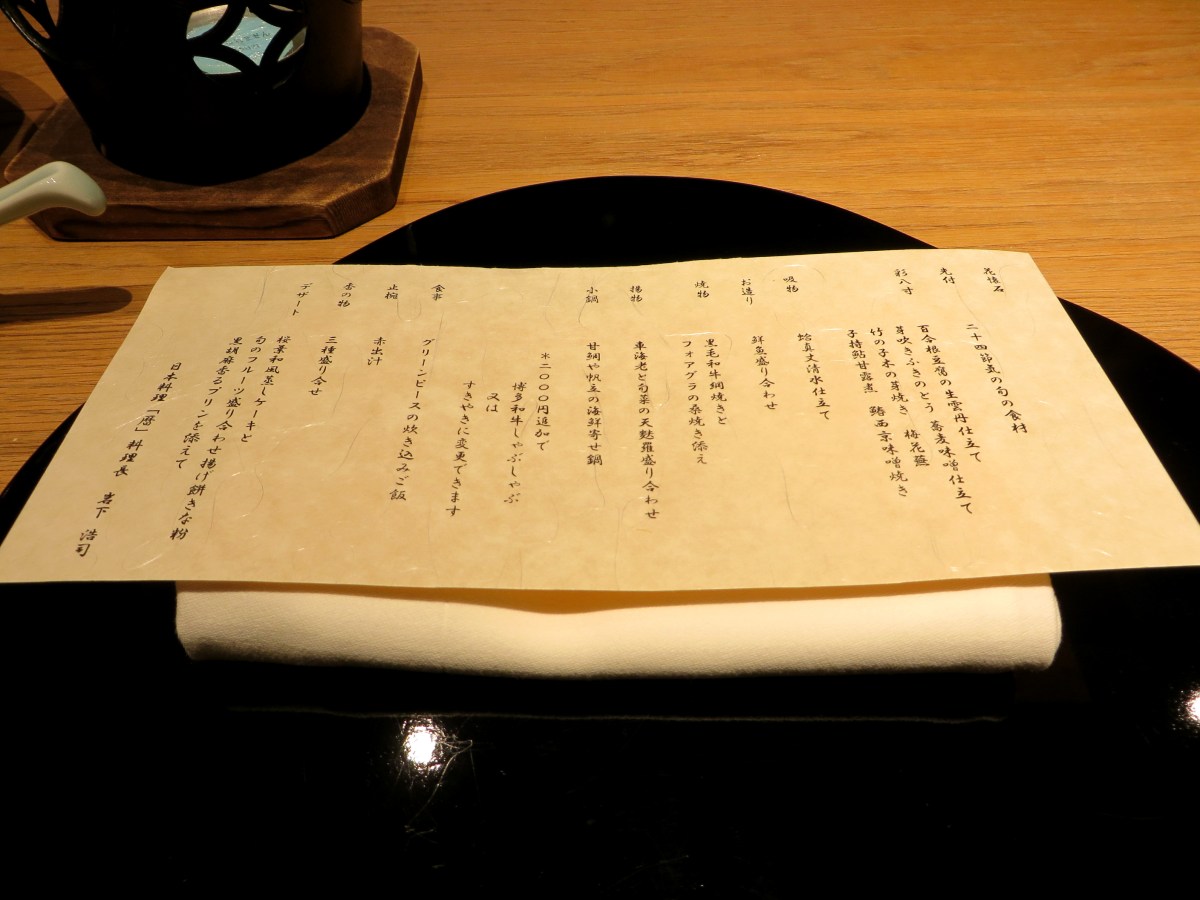 花懐石
二十四節気の旬の食材
先付
百合根豆腐の生雲丹仕立て
彩八寸
芽吹きふきのとう 蕎麦味噌仕立て
竹の子木の芽焼き 梅花蕪
子持鮎甘露煮 鰆西京味噌焼き
吸物
蛤真丈清水仕立て
お造り
鮮魚盛り合わせ
焼物
黒毛和牛網焼きと
フォアグラの桑焼き添え
揚物
車海老と旬菜の天麩羅盛り合わせ
小鍋
甘鯛や帆立の海鮮寄せ鍋
*二〇〇〇円追加で
博多和牛しゃぶしゃぶ
又は
すきやきに変更できます
食事
グリーンピースの炊き込みご飯
止椀
赤出汁
香の物
三種盛り合せ
デザート
桜葉和風蒸しチーキと
旬のフルーツ盛り合わせ揚げ餅きな粉
黒胡麻香るプリンを添えて
日本料理「暦」料理長 岩下 浩司